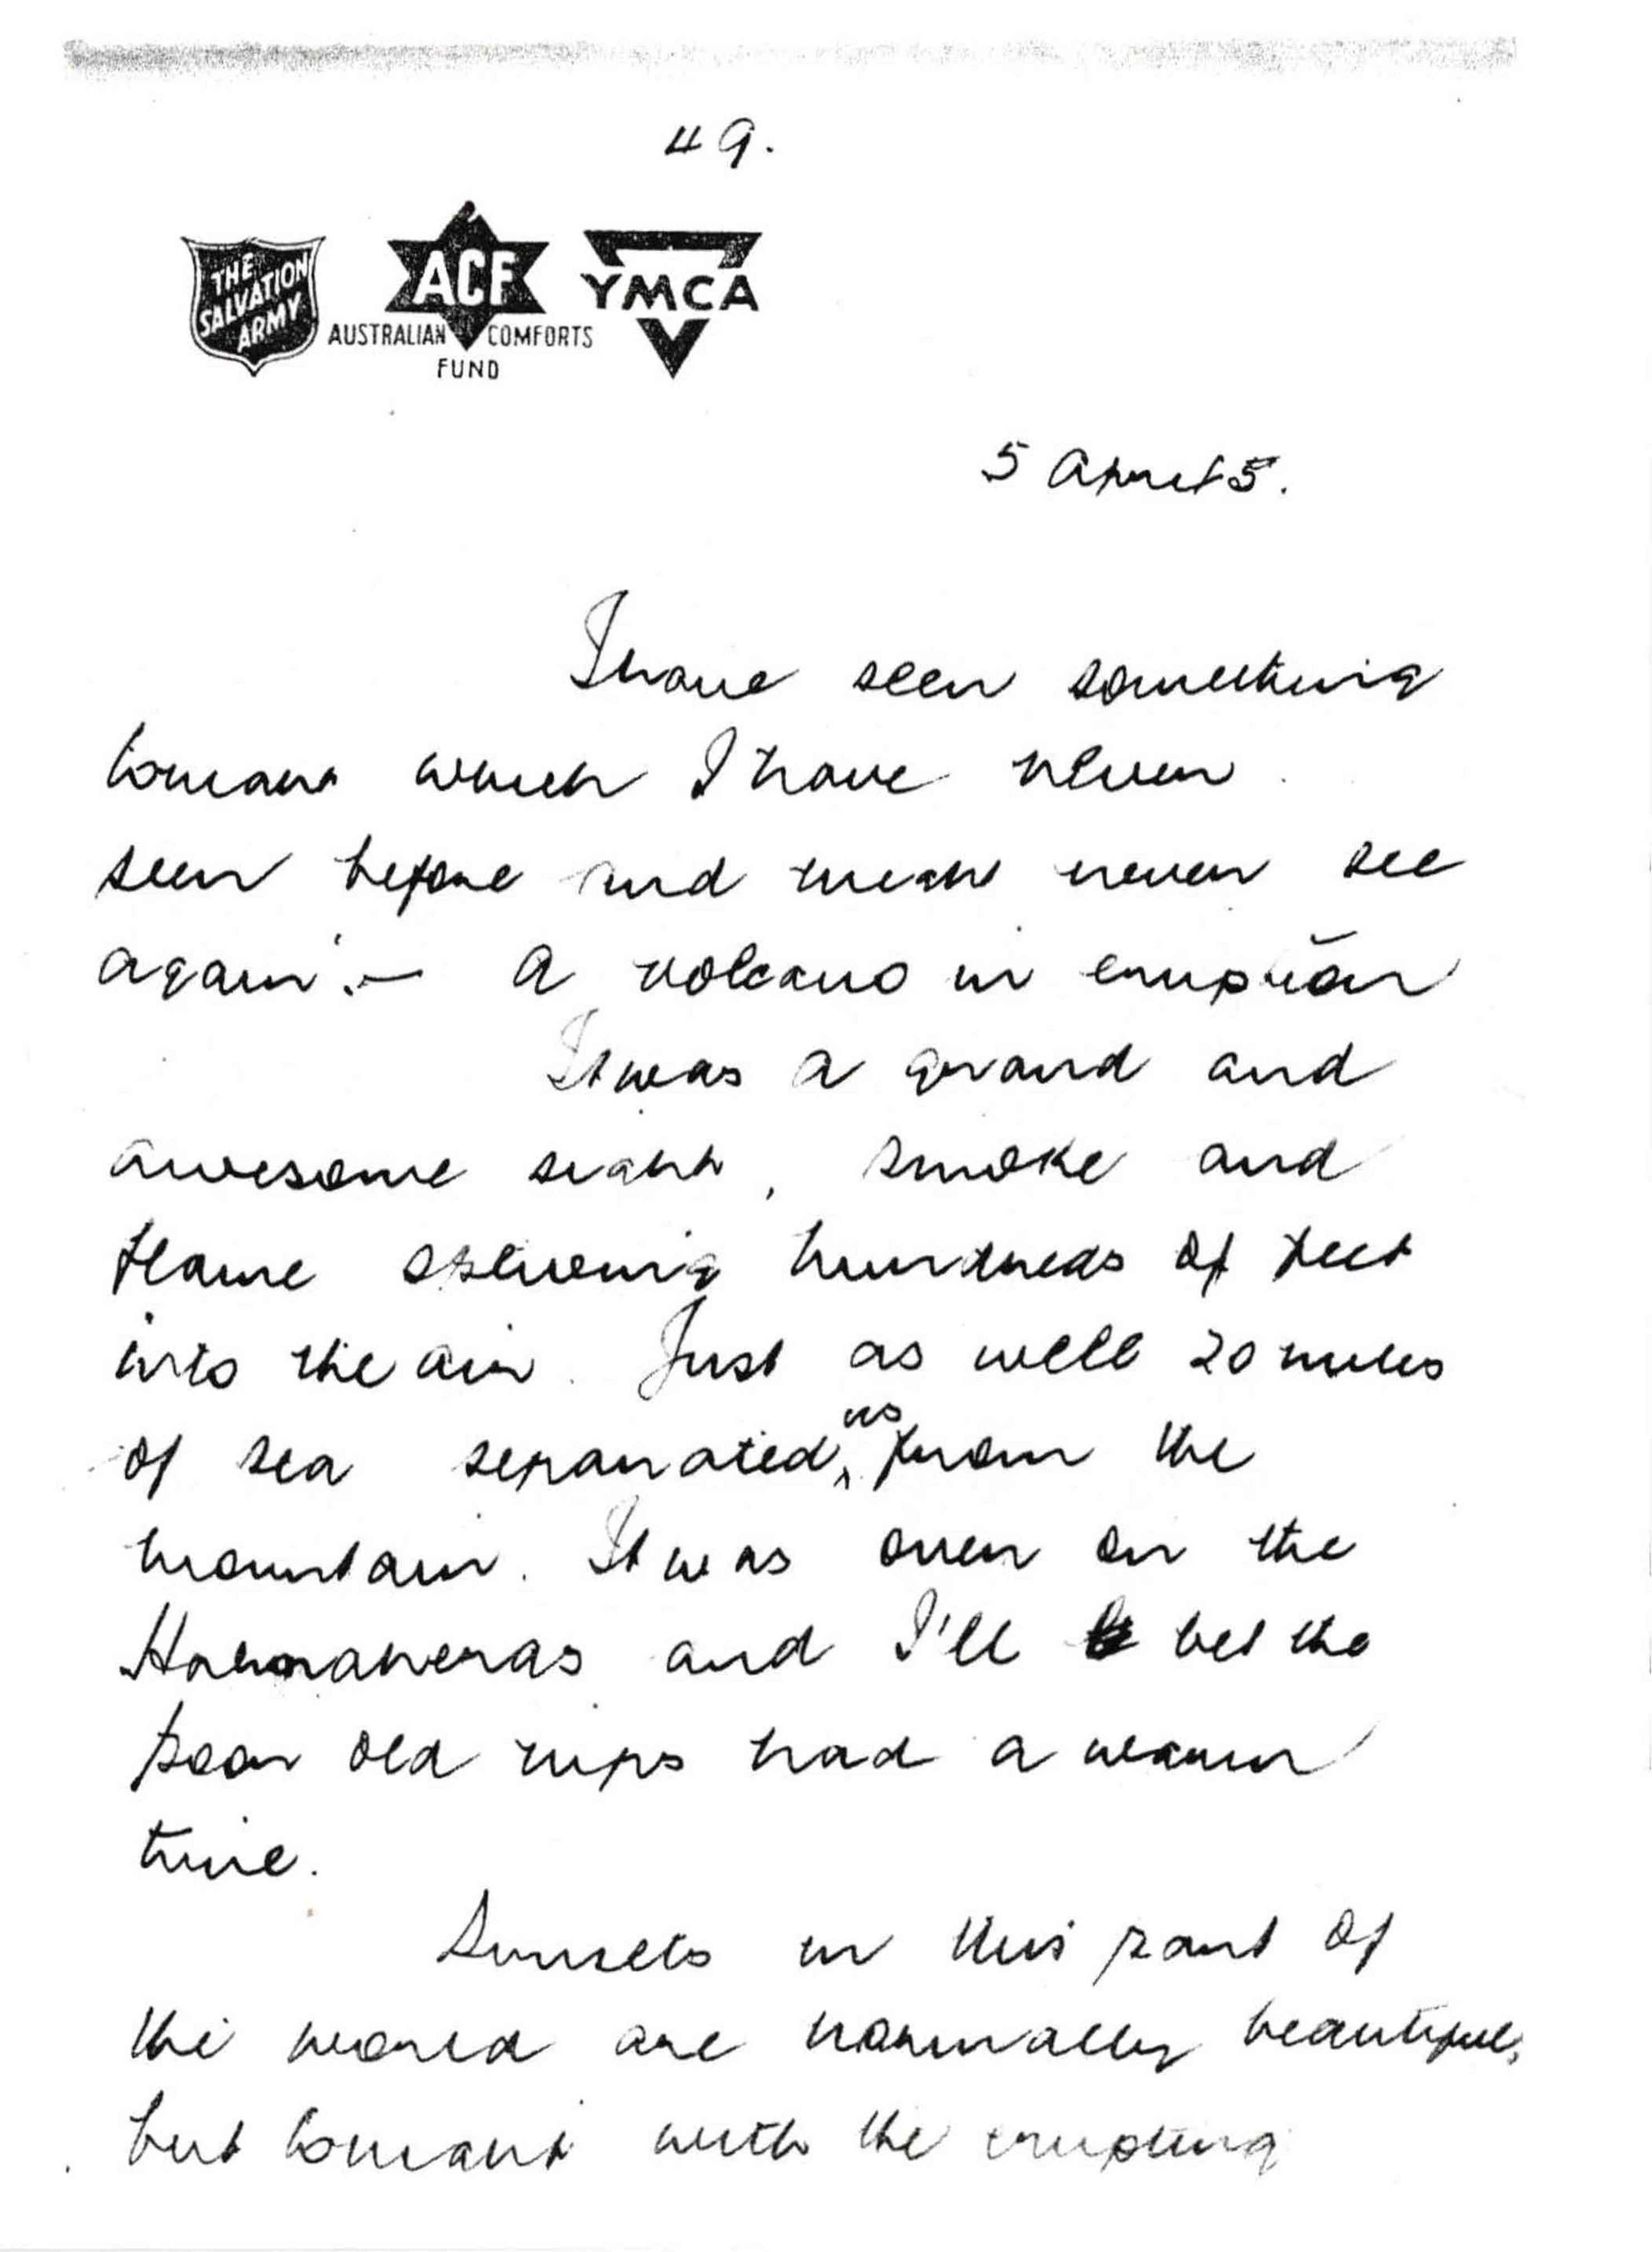 49.
THE SALVATION ARMY
ACF
AUSTRALIAN COMFORTS FUND
YMCA
5 April 5.
I have seen something
tonight which I have never
seen before and might never see
again:— A volcano in eruption
It was a grand and
awesome sight, smoke and
flame spewing hundreds of feet
into the air. Just as well 20 miles
of sea separated us from the
mountain. It was over on the
Halmaheras and I'll bet the
poor old nips had a warm
time.
Sunsets in this part of
the world are normally beautiful,
but tonight with the erupting